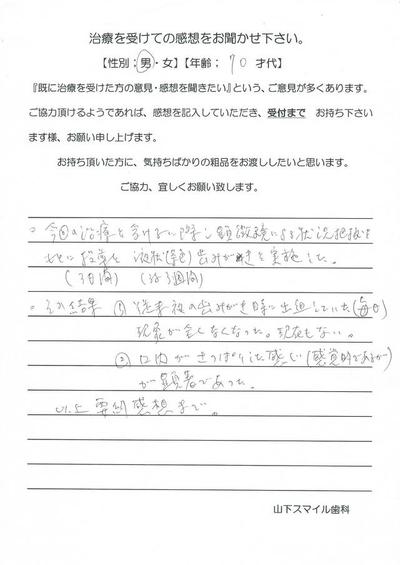 治療を受けての感想をお聞かせ下さい。
【性別；男・女】【年齢； 70 才代】
『既に治療を受けた方の意見・感想を聞きたい』という、ご意見が多くあります。
ご協力頂けるようであれば、感想を記入していただき、受付まで お持ち下さい
ます様、お願い申し上げます。
お持ち頂いた方に、気持ちばかりの粗品をお渡ししたいと思います。
ご協力、宜しくお願い致します。
○ 今回の治療を受けるに際し顕微鏡による状況把握を
もとに 投薬と 液状 歯みがきを実施した。
(3日間) (3週間)
○ その結果 ① 従来 歯みがき時に出血していた(毎日)
現象が全くなくなった。現在もない。
② 口内がさっぱりした感じ(感覚的であるが)
が顕著であった。
以上要約感想まで。
山下スマイル歯科